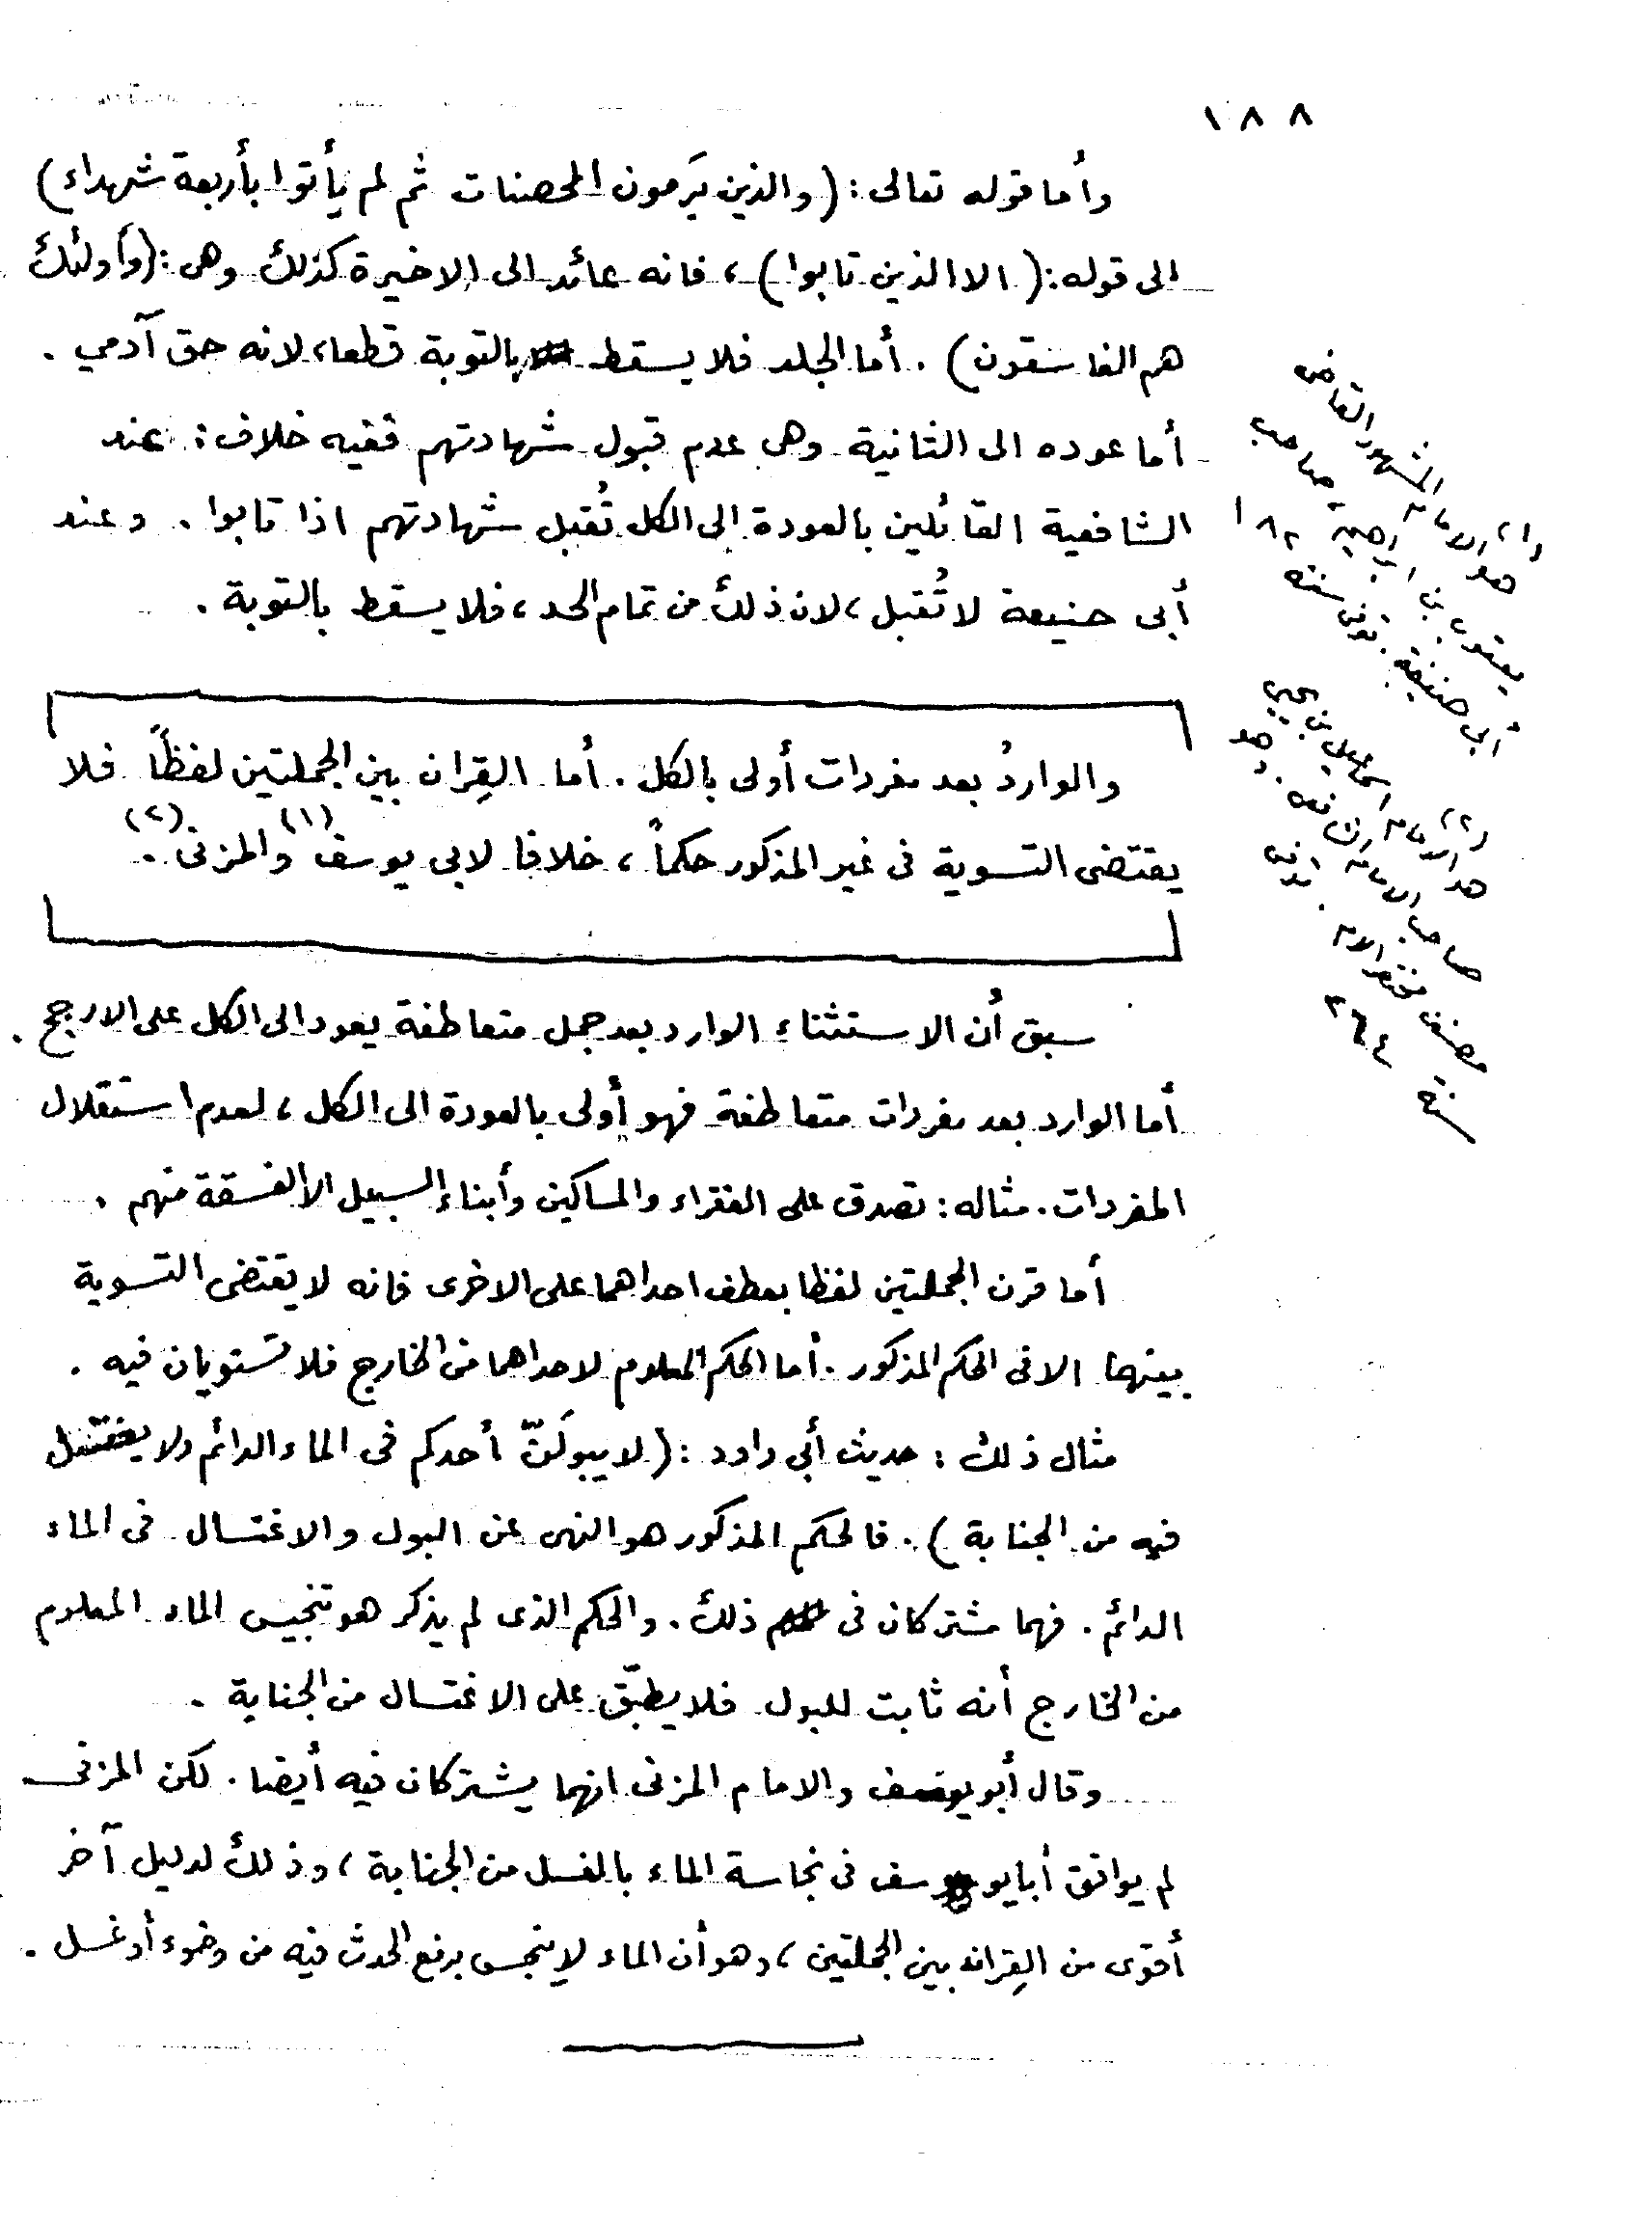 ١٨٨
وأما قوله تعالى : (والذين يَرمون المحصنات ثم لم يأتوا بأربعة شهداء)
الى قوله : ( الا الذين تابوا ) ، فانه عائد الى الاخيرة كذلك وهى : (وأولئك
هم الفاسقون ) . أما الجلد فلا يسقط بالتوبة قطعا، لانه حق آدمي .
أما عوده الى الثانية وهى عدم قبول شهادتهم ففيه خلاف : عند
الشافعية القائلين بالعودة الى الكل تُقبل شهادتهم اذا تابوا . وعند
أبى حنيفة لا تُقبل ، لان ذلك من تمام الحد ، فلا يسقط بالتوبة .
والواردُ بعد مفردات أولى بالكل . أما القِران بين الجملتين لفظاً فلا
يقتضى التسوية فى غير المذكور حكماً ، خلافا لابى يوسف (١) والمزنى (٢) .
سبق أن الاستثناء الوارد بعد جمل متعاطفة يعود الى الكل على الارجح .
أما الوارد بعد مفردات متعاطفة فهو أولى بالعودة الى الكل ، لعدم استقلال
المفردات . مثاله : تصدق على الفقراء والمساكين وأبناء السبيل الا الفسقة منهم .
أما قرن الجملتين لفظا بعطف احداهما على الاخرى فانه لا يقتضى التسوية
بينهما الا فى الحكم المذكور . أما الحكم المعلوم لاحداهما من الخارج فلا تستويان فيه .
مثال ذلك : حديث أبي داود : ( لا يبولَنّ أحدكم فى الماء الدائم ولا يغتسل
فيه من الجنابة ) . فالحكم المذكور هو النهى عن البول والاغتسال فى الماء
الدائم . فهما مشتركان فى ذلك . والحكم الذى لم يذكر هو تنجيس الماء المعلوم
من الخارج أنه ثابت للبول فلا يطبّق على الاغتسال من الجنابة .
وقال أبو يوسف والامام المزنى انهما يشتركان فيه أيضا . لكن المزنى
لم يوافق أبا يوسف فى نجاسة الماء بالغسل من الجنابة ، وذلك لدليل آخر
أقوى من القِران بين الجملتين ، وهو أن الماء لا ينجس برفع الحدث فيه من وضوء أو غسل .
(١) هو الامام المشهور القاضى
يعقوب بن ابراهيم صاحب
أبى حنيفة . توفى سنة ١٨٢
(٢) هو الامام اسماعيل بن يحيي
صاحب الامام الشافعى . وهو
مصنف مختصر الام . توفى
سنة ٢٦٤